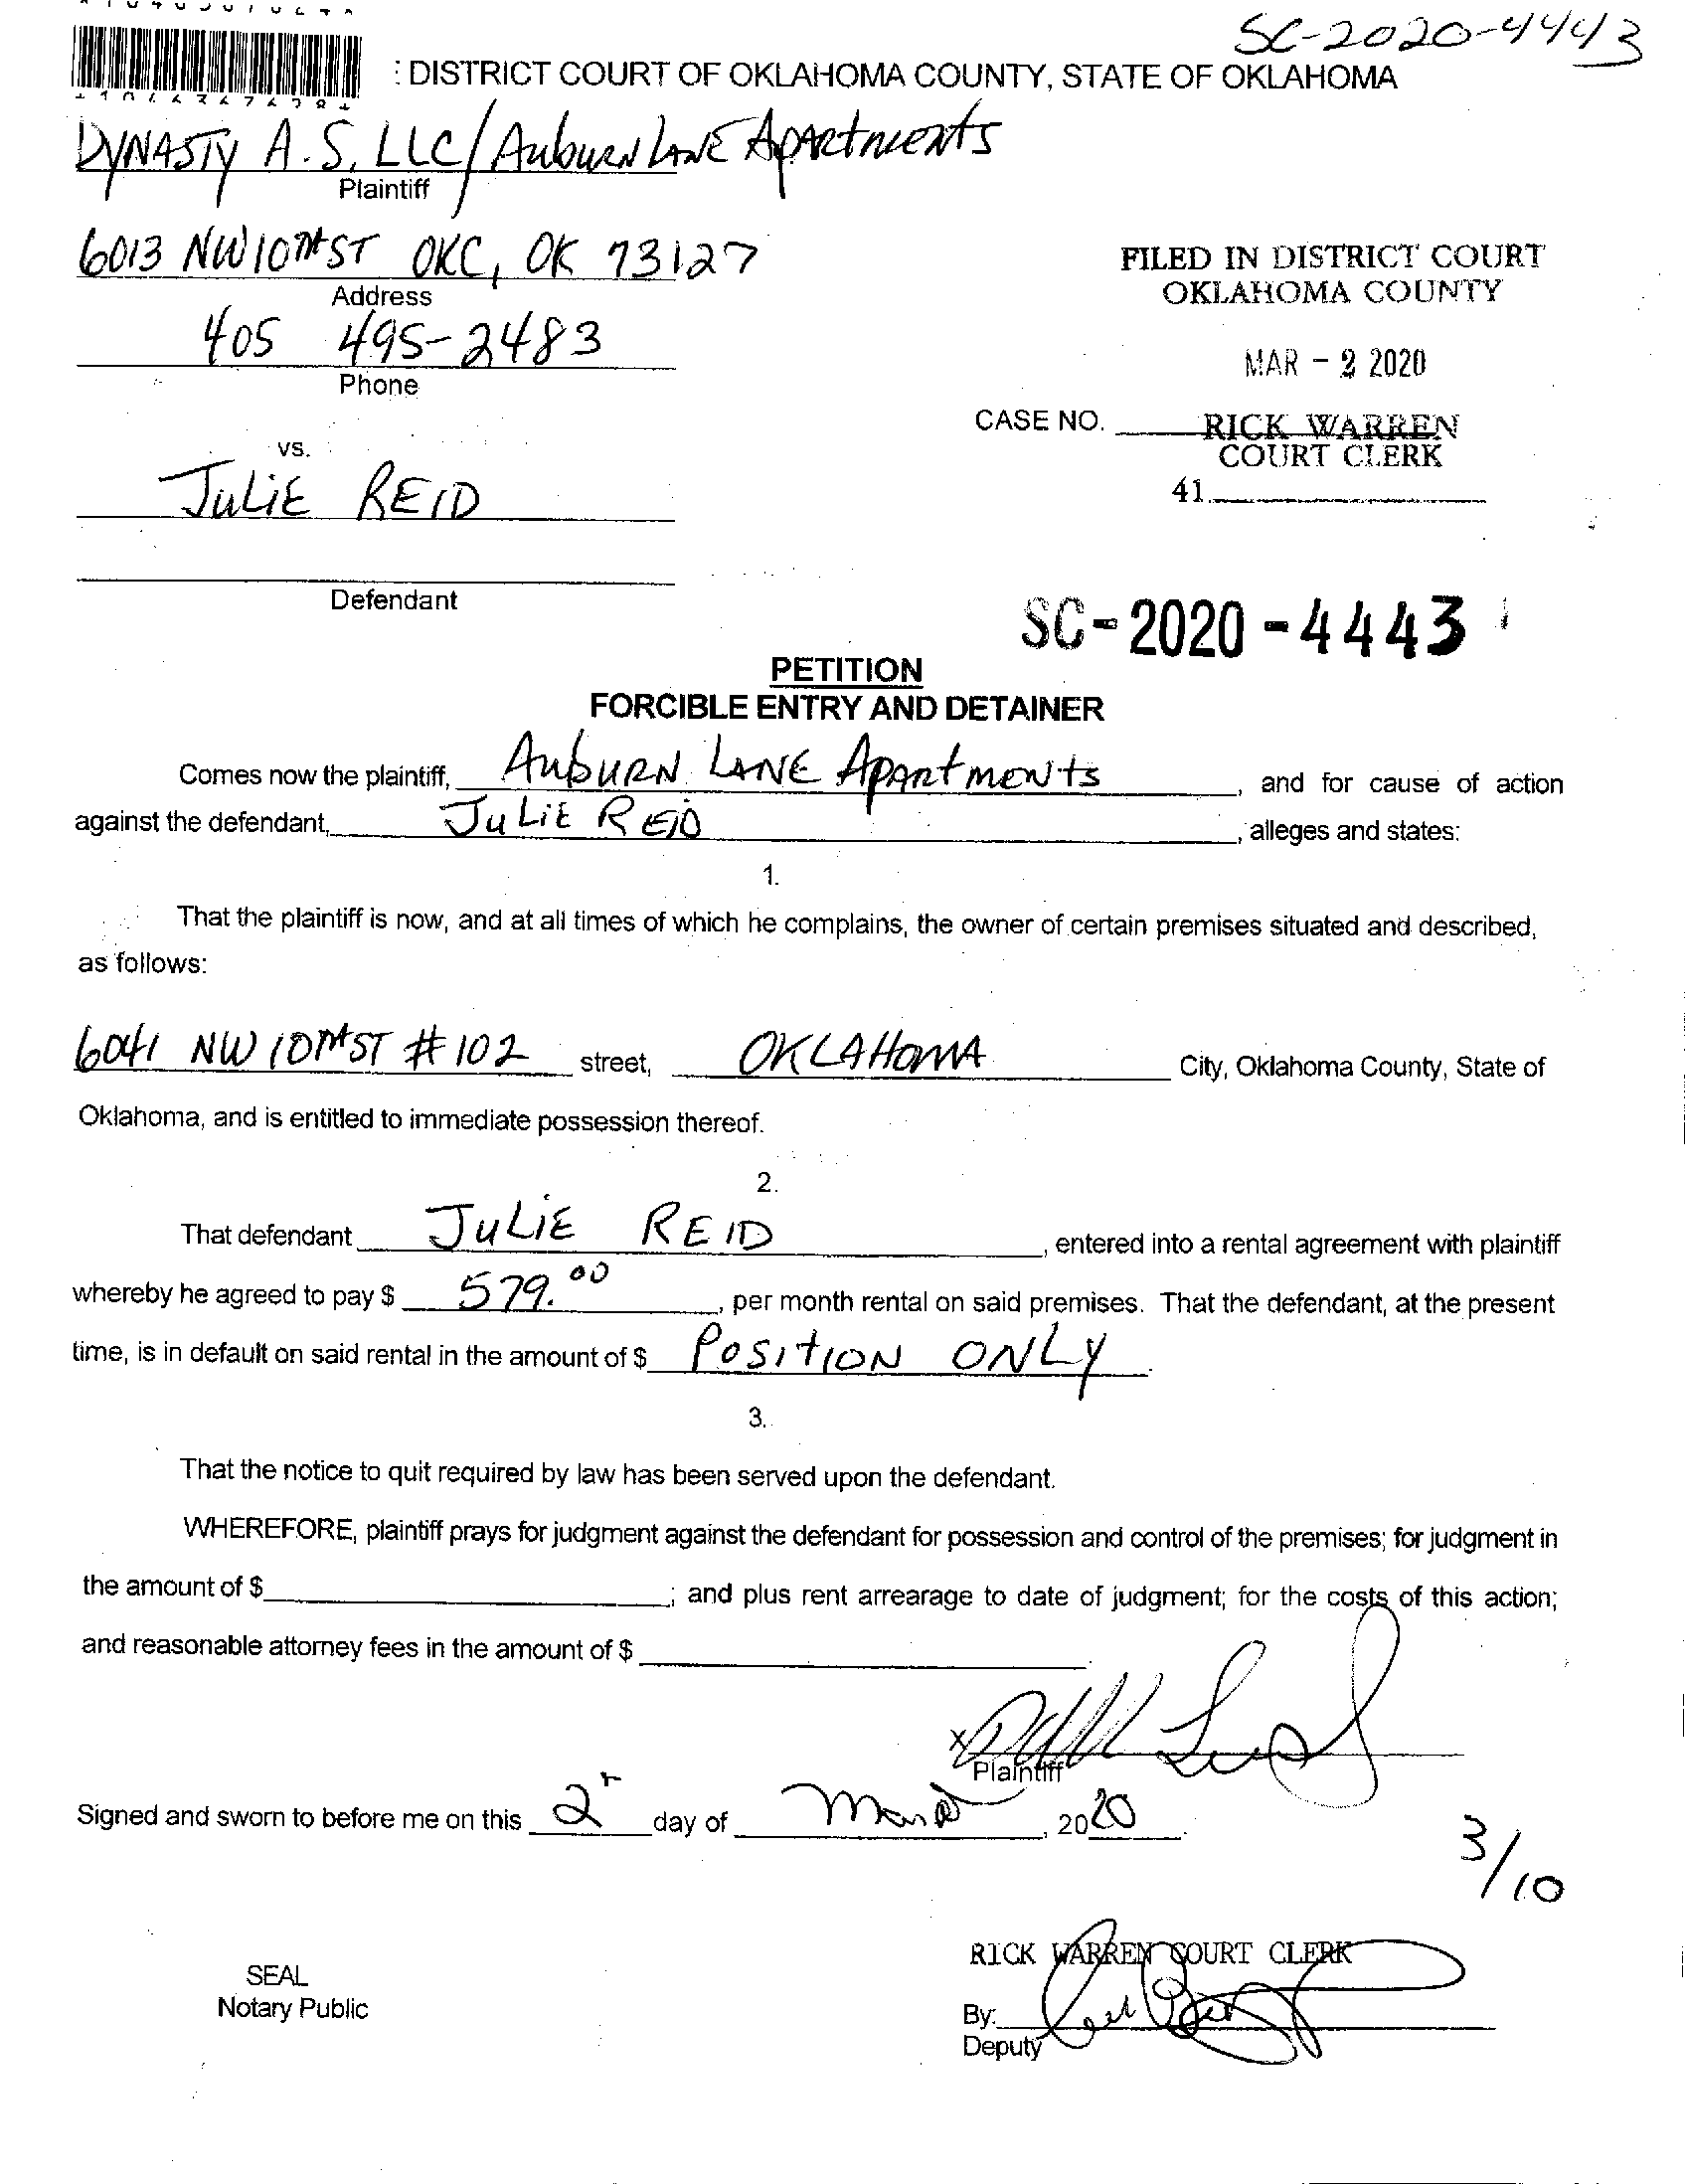 SC-2020-4443
: DISTRICT COURT OF OKLAHOMA COUNTY, STATE OF OKLAHOMA
DYNASTY A.S, LLC/Auburn LANE Apartments
Plaintiff
6013 NW 10TH ST OKC, OK 73127
Address
405 495-2483
Phone
FILED IN DISTRICT COURT
OKLAHOMA COUNTY
MAR - 2 2020
CASE NO.
RICK WARREN
COURT CLERK
41.
vs.
JULIE REID
Defendant
SC-2020-4443
PETITION
FORCIBLE ENTRY AND DETAINER
Comes now the plaintiff, AuburN LANE ApARtmeNts, and for cause of action
against the defendant, JuLiE REID, alleges and states:
1.
That the plaintiff is now, and at all times of which he complains, the owner of certain premises situated and described,
as follows:
6041 NW 10TH ST # 102 street, OKLAHOMA City, Oklahoma County, State of
Oklahoma, and is entitled to immediate possession thereof.
2.
That defendant JULIE REID, entered into a rental agreement with plaintiff
whereby he agreed to pay $ 579.00, per month rental on said premises. That the defendant, at the present
time, is in default on said rental in the amount of $ POSITION ONLY.
3.
That the notice to quit required by law has been served upon the defendant.
WHEREFORE, plaintiff prays for judgment against the defendant for possession and control of the premises; for judgment in
the amount of $ ; and plus rent arrearage to date of judgment; for the costs of this action;
and reasonable attorney fees in the amount of $
x
Plaintiff
Signed and sworn to before me on this 2 day of March, 2020
3/10
RICK WARREN COURT CLERK
SEAL
Notary Public
By:
Deputy